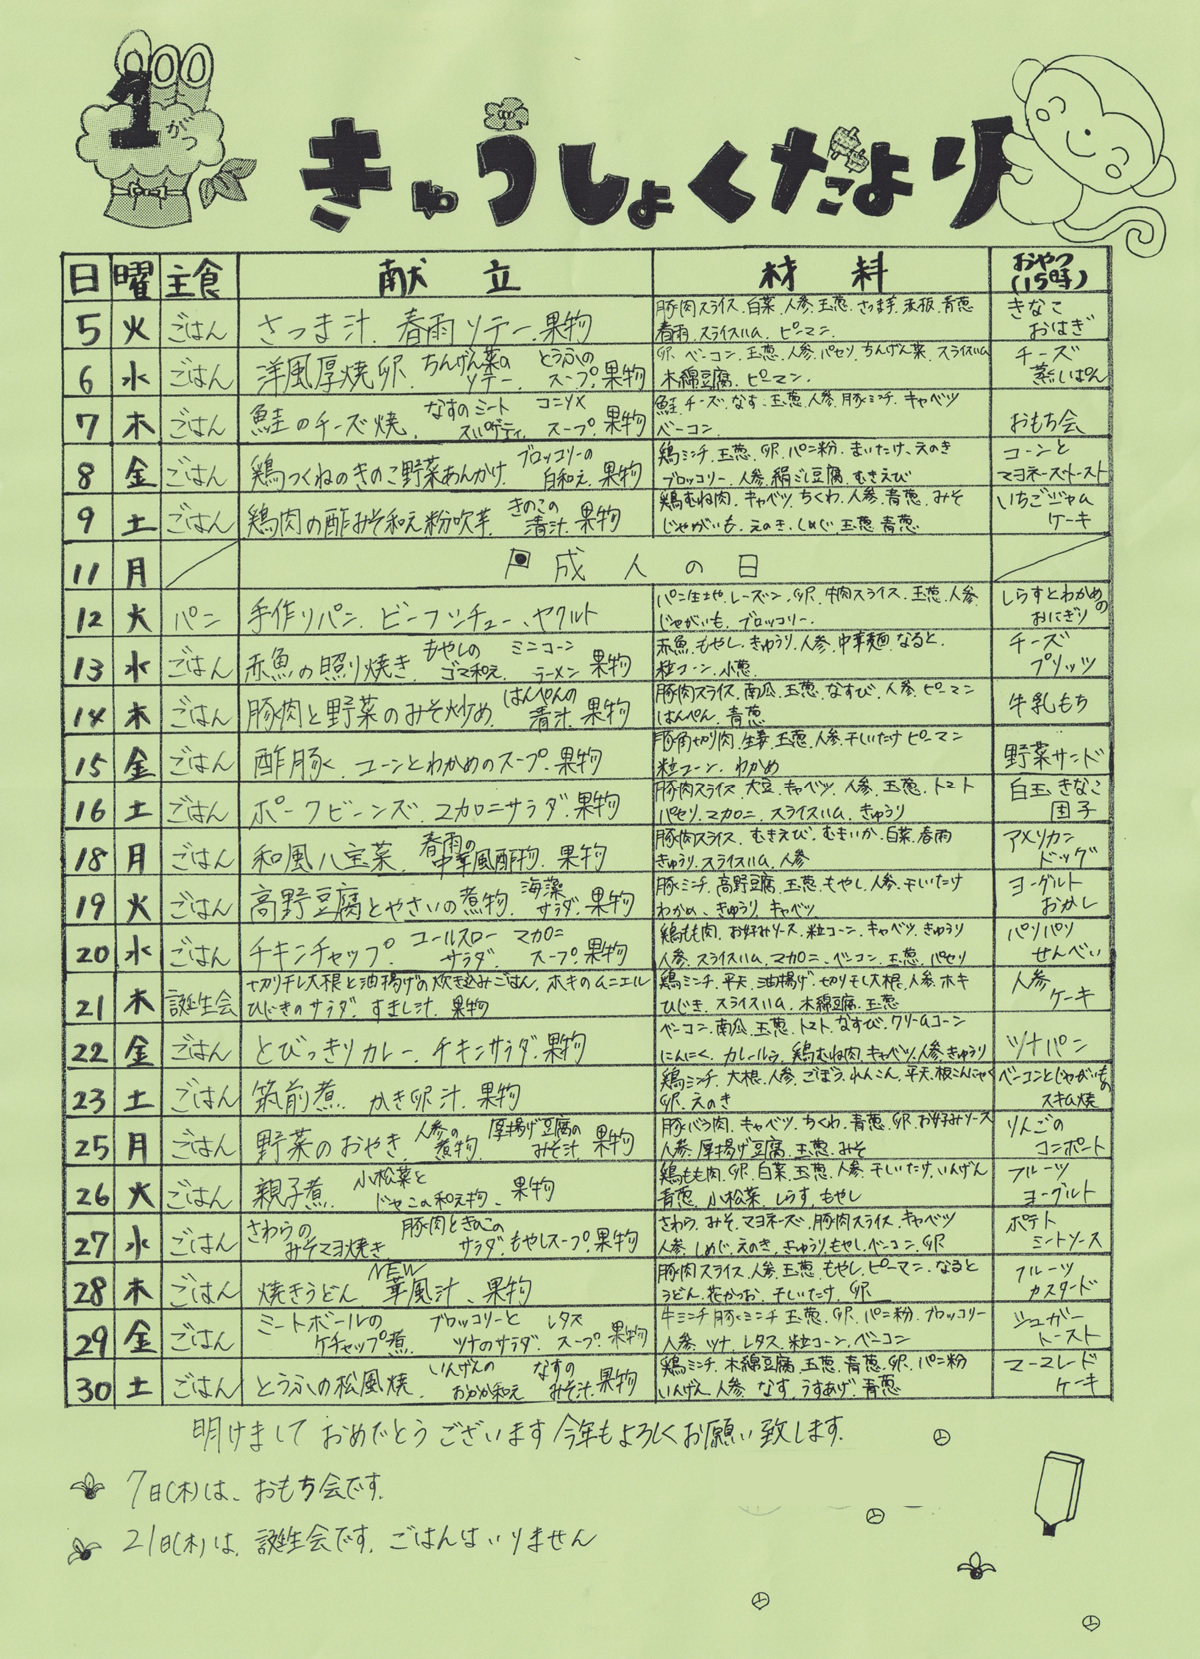 1がつ
きゅうしょくだより
日 曜 主食 献立 材料 おやつ(15時)
5 火 ごはん さつま汁、春雨ソテー、果物 豚肉スライス、白菜、人参、玉葱、さつま芋、赤板、青葱 きなこ
春雨、スライスハム、ピーマン おはぎ
6 水 ごはん 洋風厚焼卵、ちんげん菜のソテー、とうふのスープ、果物 卵、ベーコン、玉葱、人参、パセリ、ちんげん菜、スライスハム チーズ
木綿豆腐、ピーマン 蒸しぱん
7 木 ごはん 鮭のチーズ焼、なすのミートスパゲティ、コンソメスープ、果物 鮭、チーズ、なす、玉葱、人参、豚ミンチ、キャベツ おもち会
ベーコン
8 金 ごはん 鶏つくねのきのこ野菜あんかけ、ブロッコリーの白和え、果物 鶏ミンチ、玉葱、卵、パン粉、まいたけ、えのき コーンと
ブロッコリー、人参、絹ごし豆腐、むきえび マヨネーズトースト
9 土 ごはん 鶏肉の酢みそ和え、粉吹芋、きのこの清汁、果物 鶏むね肉、キャベツ、ちくわ、人参、青葱、みそ いちごジャム
じゃがいも、えのき、しめじ、玉葱、青葱 ケーキ
11 月 成人の日
12 火 パン 手作りパン、ビーフシチュー、ヤクルト パン生地、レーズン、卵、牛肉スライス、玉葱、人参 しらすとわかめの
じゃがいも、ブロッコリー おにぎり
13 水 ごはん 赤魚の照り焼き、もやしのゴマ和え、ミニコーンラーメン、果物 赤魚、もやし、きゅうり、人参、中華麺、なると、 チーズ
粒コーン、小葱 プリッツ
14 木 ごはん 豚肉と野菜のみそ炒め、はんぺんの清汁、果物 豚肉スライス、南瓜、玉葱、なすび、人参、ピーマン 牛乳もち
はんぺん、青葱
15 金 ごはん 酢豚、コーンとわかめのスープ、果物 豚角切り肉、生姜、玉葱、人参、干しいたけ、ピーマン 野菜サンド
粒コーン、わかめ
16 土 ごはん ポークビーンズ、マカロニサラダ、果物 豚肉スライス、大豆、キャベツ、人参、玉葱、トマト 白玉きなこ
パセリ、マカロニ、スライスハム、きゅうり 団子
18 月 ごはん 和風八宝菜、春雨の中華風酢物、果物 豚肉スライス、むきえび、むきいか、白菜、春雨 アメリカン
きゅうり、スライスハム、人参 ドッグ
19 火 ごはん 高野豆腐とやさいの煮物、海藻サラダ、果物 豚ミンチ、高野豆腐、玉葱、もやし、人参、干しいたけ ヨーグルト
わかめ、きゅうり、キャベツ おかし
20 水 ごはん チキンチャップ、コールスローサラダ、マカロニスープ、果物 鶏もも肉、お好みソース、粒コーン、キャベツ、きゅうり パリパリ
人参、スライスハム、マカロニ、ベーコン、玉葱、パセリ せんべい
21 木 誕生会 切り干し大根と油揚げの炊き込みごはん、ホキのムニエル 鶏ミンチ、平天、油揚げ、切り干し大根、人参、ホキ 人参
ひじきのサラダ、すまし汁、果物 ひじき、スライスハム、木綿豆腐、玉葱 ケーキ
22 金 ごはん とびっきりカレー、チキンサラダ、果物 ベーコン、南瓜、玉葱、トマト、なすび、クリームコーン ツナパン
にんにく、カレールウ、鶏むね肉、キャベツ、人参、きゅうり
23 土 ごはん 筑前煮、かき卵汁、果物 鶏ミンチ、大根、人参、ごぼう、れんこん、平天、板こんにゃく ベーコンとじゃがいもの
卵、えのき スキム焼
25 月 ごはん 野菜のおやき、人参の煮物、厚揚げ豆腐のみそ汁、果物 豚バラ肉、キャベツ、ちくわ、青葱、卵、お好みソース りんごの
人参、厚揚げ豆腐、玉葱、みそ コンポート
26 火 ごはん 親子煮、小松菜とじゃこの和え物、果物 鶏もも肉、卵、白菜、玉葱、人参、干しいたけ、いんげん フルーツ
青葱、小松菜、しらす、もやし ヨーグルト
27 水 ごはん さわらのみそマヨ焼き、豚肉ときのこのサラダ、もやしスープ、果物 さわら、みそ、マヨネーズ、豚肉スライス、キャベツ ポテト
人参、しめじ、えのき、きゅうり、もやし、ベーコン、卵 ミートソース
28 木 ごはん 焼きうどん、NEW華風汁、果物 豚肉スライス、人参、玉葱、もやし、ピーマン、なると フルーツ
うどん、花かつお、干しいたけ、卵 カスタード
29 金 ごはん ミートボールのケチャップ煮、ブロッコリーとツナのサラダ、レタススープ、果物 牛ミンチ、豚ミンチ、玉葱、卵、パン粉、ブロッコリー シュガー
人参、ツナ、レタス、粒コーン、ベーコン トースト
30 土 ごはん とうふの松風焼、いんげんのおかか和え、なすのみそ汁、果物 鶏ミンチ、木綿豆腐、玉葱、青葱、卵、パン粉 マーマレード
いんげん、人参、なす、うすあげ、青葱 ケーキ
明けまして おめでとうございます 今年もよろしくお願い致します。
7日(木)は、おもち会です。
21日(木)は、誕生会です。ごはんはいりません